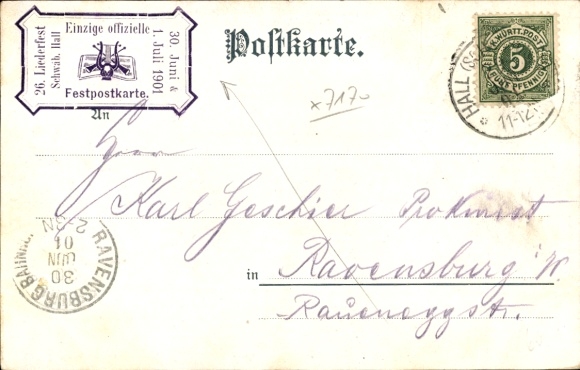 26. Liederfest
Schwäb. Hall
Einzige offizielle
Festpostkarte.
30. Juni &
1. Juli 1901
Postkarte.
K. WÜRTT. POST
5
FÜNF PFENNIG
HALL (SC
11-12
x7170
An
Herrn
Karl Geschier Prokurist
in Ravensburg i/W
Raueneggstr.
RAVENSBURG BAHNHO
30
JUN
01
2-3N